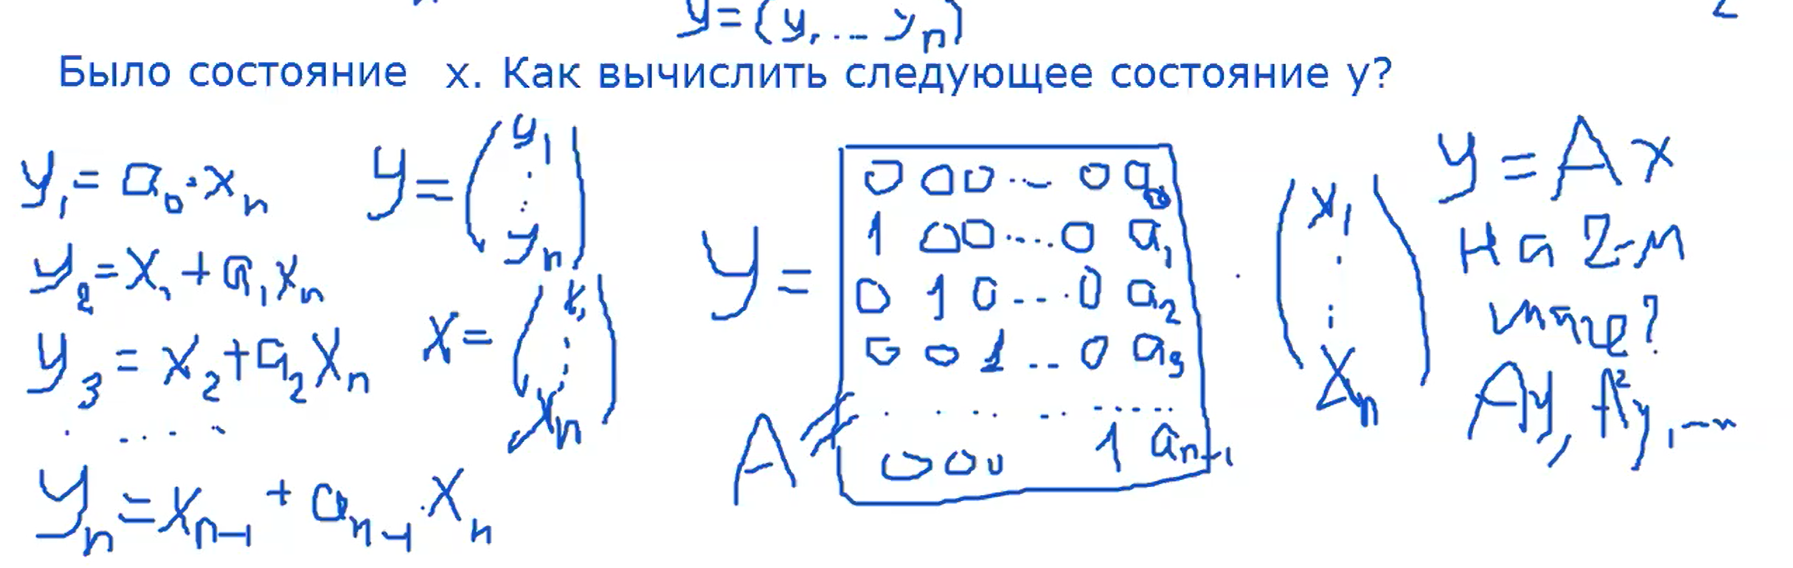 y = (y₁ ... yₙ)
Было состояние x. Как вычислить следующее состояние y?
y₁ = a₀·xₙ
y₂ = x₁ + a₁xₙ
y₃ = x₂ + a₂xₙ
. . . . .
yₙ = xₙ₋₁ + aₙ₋₁·xₙ
y = (y₁ ⋮ yₙ)
x = (x₁ ⋮ xₙ)
y =
0 0 0 ... 0 a₀
1 0 0 .... 0 a₁
0 1 0 ... 0 a₂
0 0 1 .. 0 a₃
. . . . . . . . .
0 0 0 1 aₙ₋₁
A =
· (x₁ ⋮ xₙ)
y = Ax
на 2-м
шаге?
Ay, A²y, ...